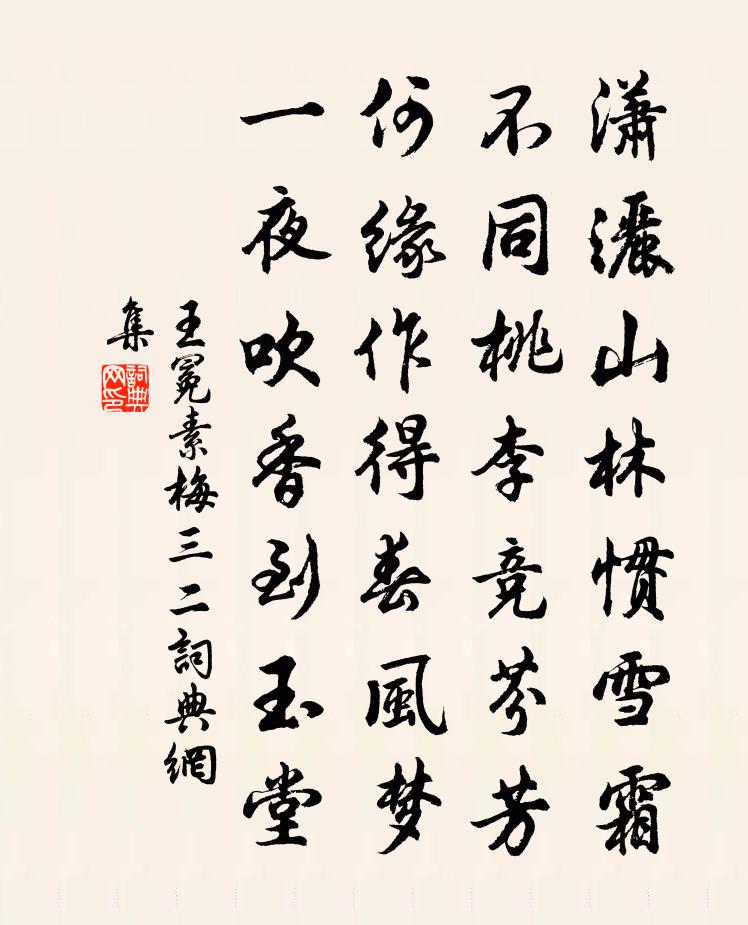 瀟灑山林慣雪霜
不同桃李竞芬芳
何缘作得春風梦
一夜吹香到玉堂
王冕素梅三二詞典網
集
詞典
网印